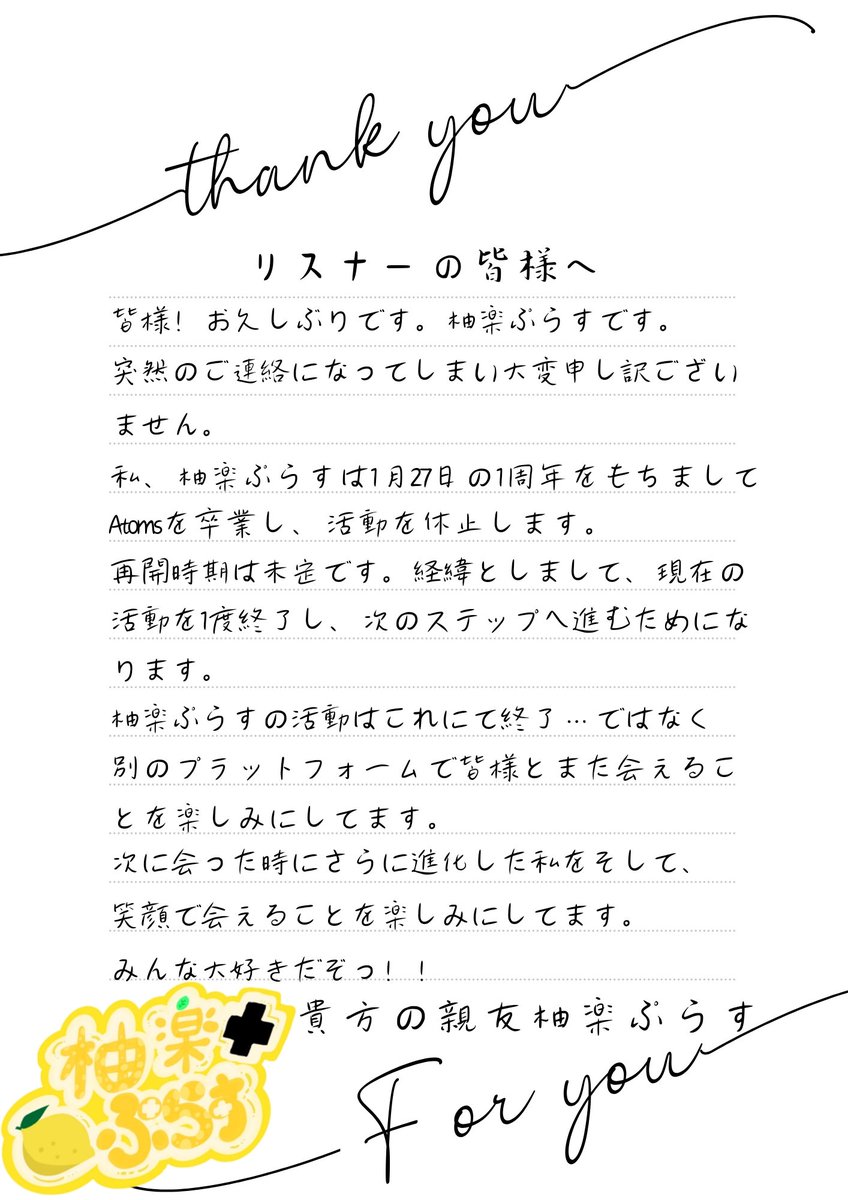 thank you
リスナーの皆様へ
皆様！お久しぶりです。柚楽ぷらすです。
突然のご連絡になってしまい大変申し訳ござい
ません。
私、柚楽ぷらすは1月27日の1周年をもちまして
Atomsを卒業し、活動を休止します。
再開時期は未定です。経緯としまして、現在の
活動を1度終了し、次のステップへ進むためにな
ります。
柚楽ぷらすの活動はこれにて終了…ではなく
別のプラットフォームで皆様とまた会えるこ
とを楽しみにしてます。
次に会った時にさらに進化した私をそして、
笑顔で会えることを楽しみにしてます。
みんな大好きだぞっ！！
貴方の親友柚楽ぷらす
柚楽
ぷらす
For you